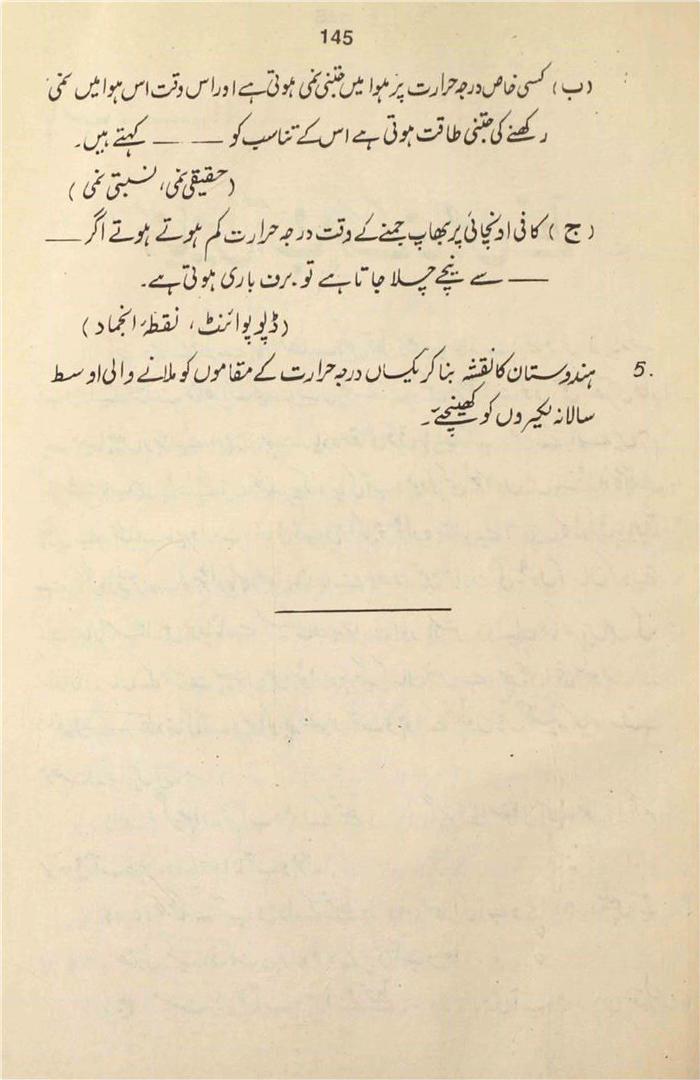 145
(ب) کسی خاص درجہ حرارت پر ہوا میں جتنی نمی ہوتی ہے اور اس وقت اس ہوا میں نمی
رکھنے کی جتنی طاقت ہوتی ہے اس کے تناسب کو ــــ ــــ کہتے ہیں۔
(حقیقی نمی، نسبتی نمی)
(ج) کافی اونچائی پر بھاپ جمنے کے وقت درجہ حرارت کم ہوتے ہوتے اگر ــــ
ــــ سے نیچے چلا جاتا ہے تو برف باری ہوتی ہے۔
(ڈیوپوائنٹ، نقطۂ انجماد)
5. ہندوستان کا نقشہ بنا کر یکساں درجہ حرارت کے مقاموں کو ملانے والی اوسط
سالانہ لکیروں کو کھینچیے۔